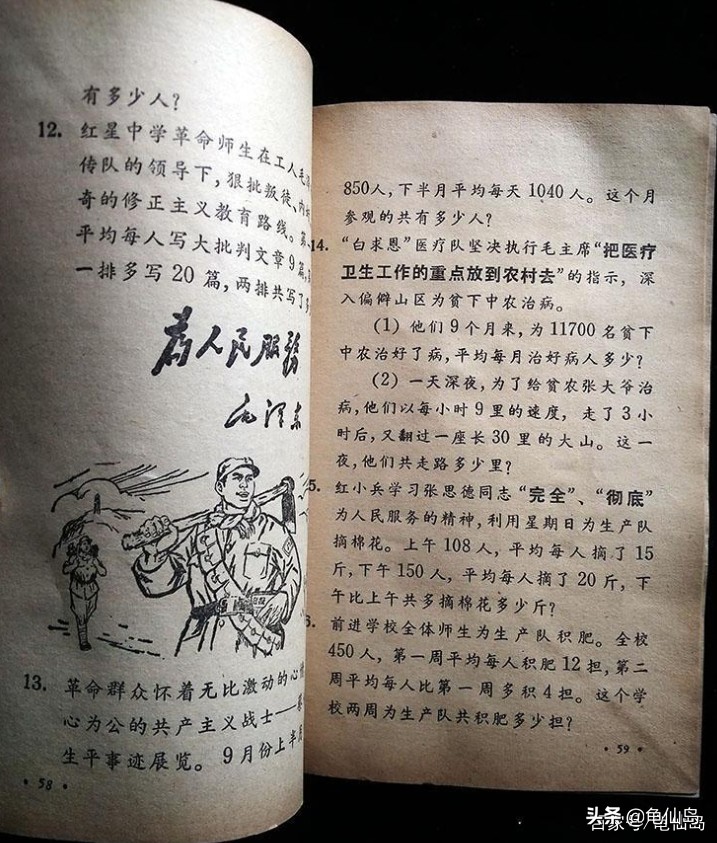 有多少人?
12. 红星中学革命师生在工人毛泽
传队的领导下,狠批叛徒、内
奇的修正主义教育路线。第
平均每人写大批判文章9篇,
一排多写20篇,两排共写了多
为人民服务
毛泽东
13. 革命群众怀着无比激动的心情
心为公的共产主义战士——蔡
生平事迹展览。9月份上半月
·58·
850人,下半月平均每天1040人。这个月
参观的共有多少人?
14. “白求恩”医疗队坚决执行毛主席“把医疗
卫生工作的重点放到农村去”的指示,深
入偏僻山区为贫下中农治病。
(1) 他们9个月来,为11700名贫下
中农治好了病,平均每月治好病人多少?
(2) 一天深夜,为了给贫农张大爷治
病,他们以每小时9里的速度,走了3小
时后,又翻过一座长30里的大山。这一
夜,他们共走路多少里?
5. 红小兵学习张思德同志“完全”、“彻底”
为人民服务的精神,利用星期日为生产队
摘棉花。上午108人,平均每人摘了15
斤,下午150人,平均每人摘了20斤,下
午比上午共多摘棉花多少斤?
6. 前进学校全体师生为生产队积肥。全校
450人,第一周平均每人积肥12担,第二
周平均每人比第一周多积4担。这个学
校两周为生产队共积肥多少担?
·59·
头条@龟仙岛
百家号/龟仙岛